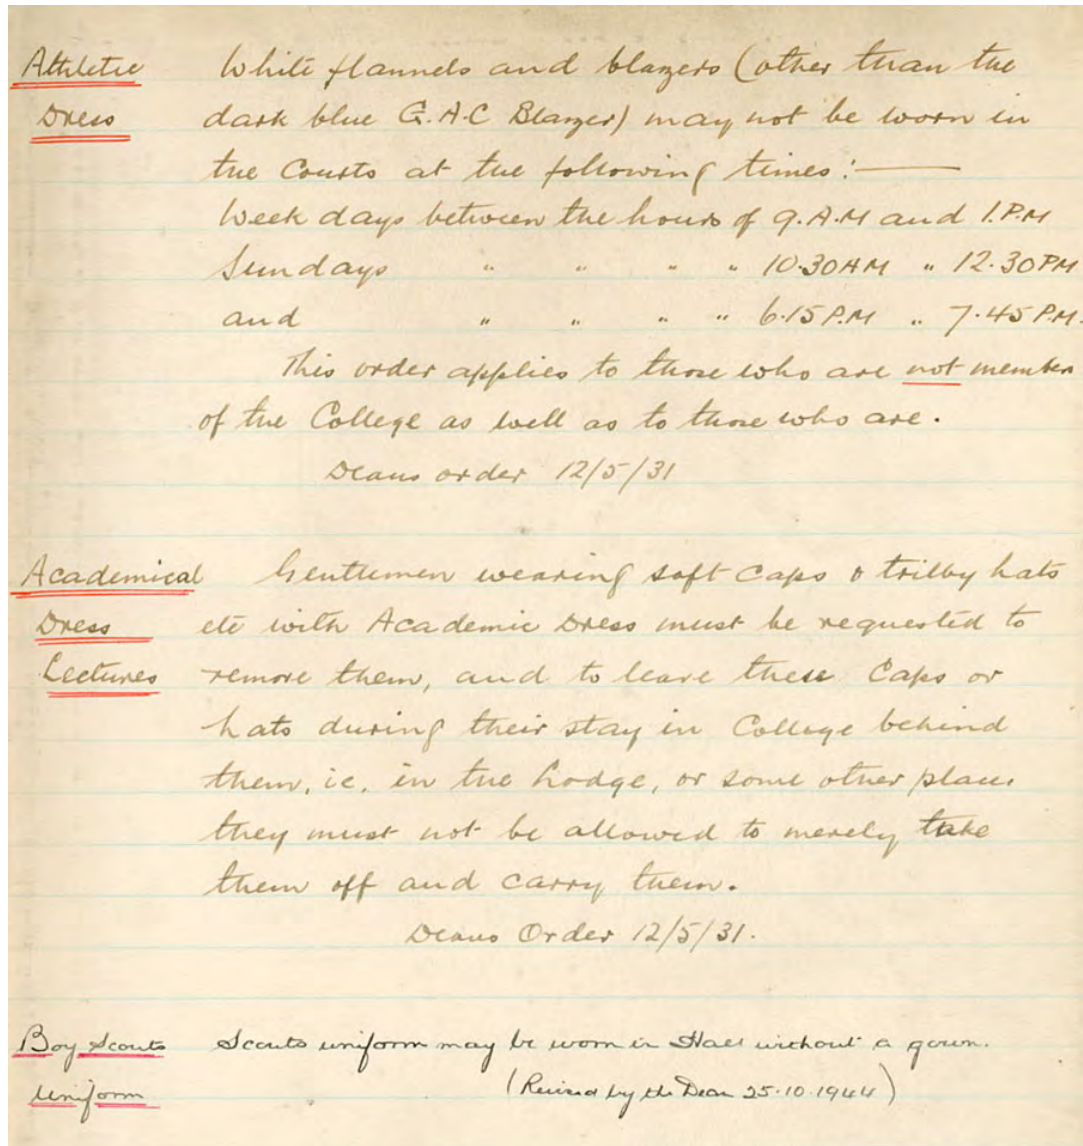 Athletic White flannels and blazers (other than the
Dress dark blue G.A.C Blazer) may not be worn in
the Courts at the following times:—
Week days between the hours of 9.A.M and 1.P.M
Sundays " " " " 10.30AM " 12.30PM
and " " " " 6.15P.M " 7.45P.M.
This order applies to those who are not members
of the College as well as to those who are.
Deans order 12/5/31
Academical Gentlemen wearing soft caps & trilby hats
Dress etc with Academic Dress must be requested to
Lectures remove them, and to leave these Caps or
hats during their stay in College behind
them, ie, in the Lodge, or some other place
they must not be allowed to merely take
them off and carry them.
Deans Order 12/5/31.
Boy Scouts Scouts uniform may be worn in Hall without a gown.
Uniform (Revised by the Dean 25.10.1944)